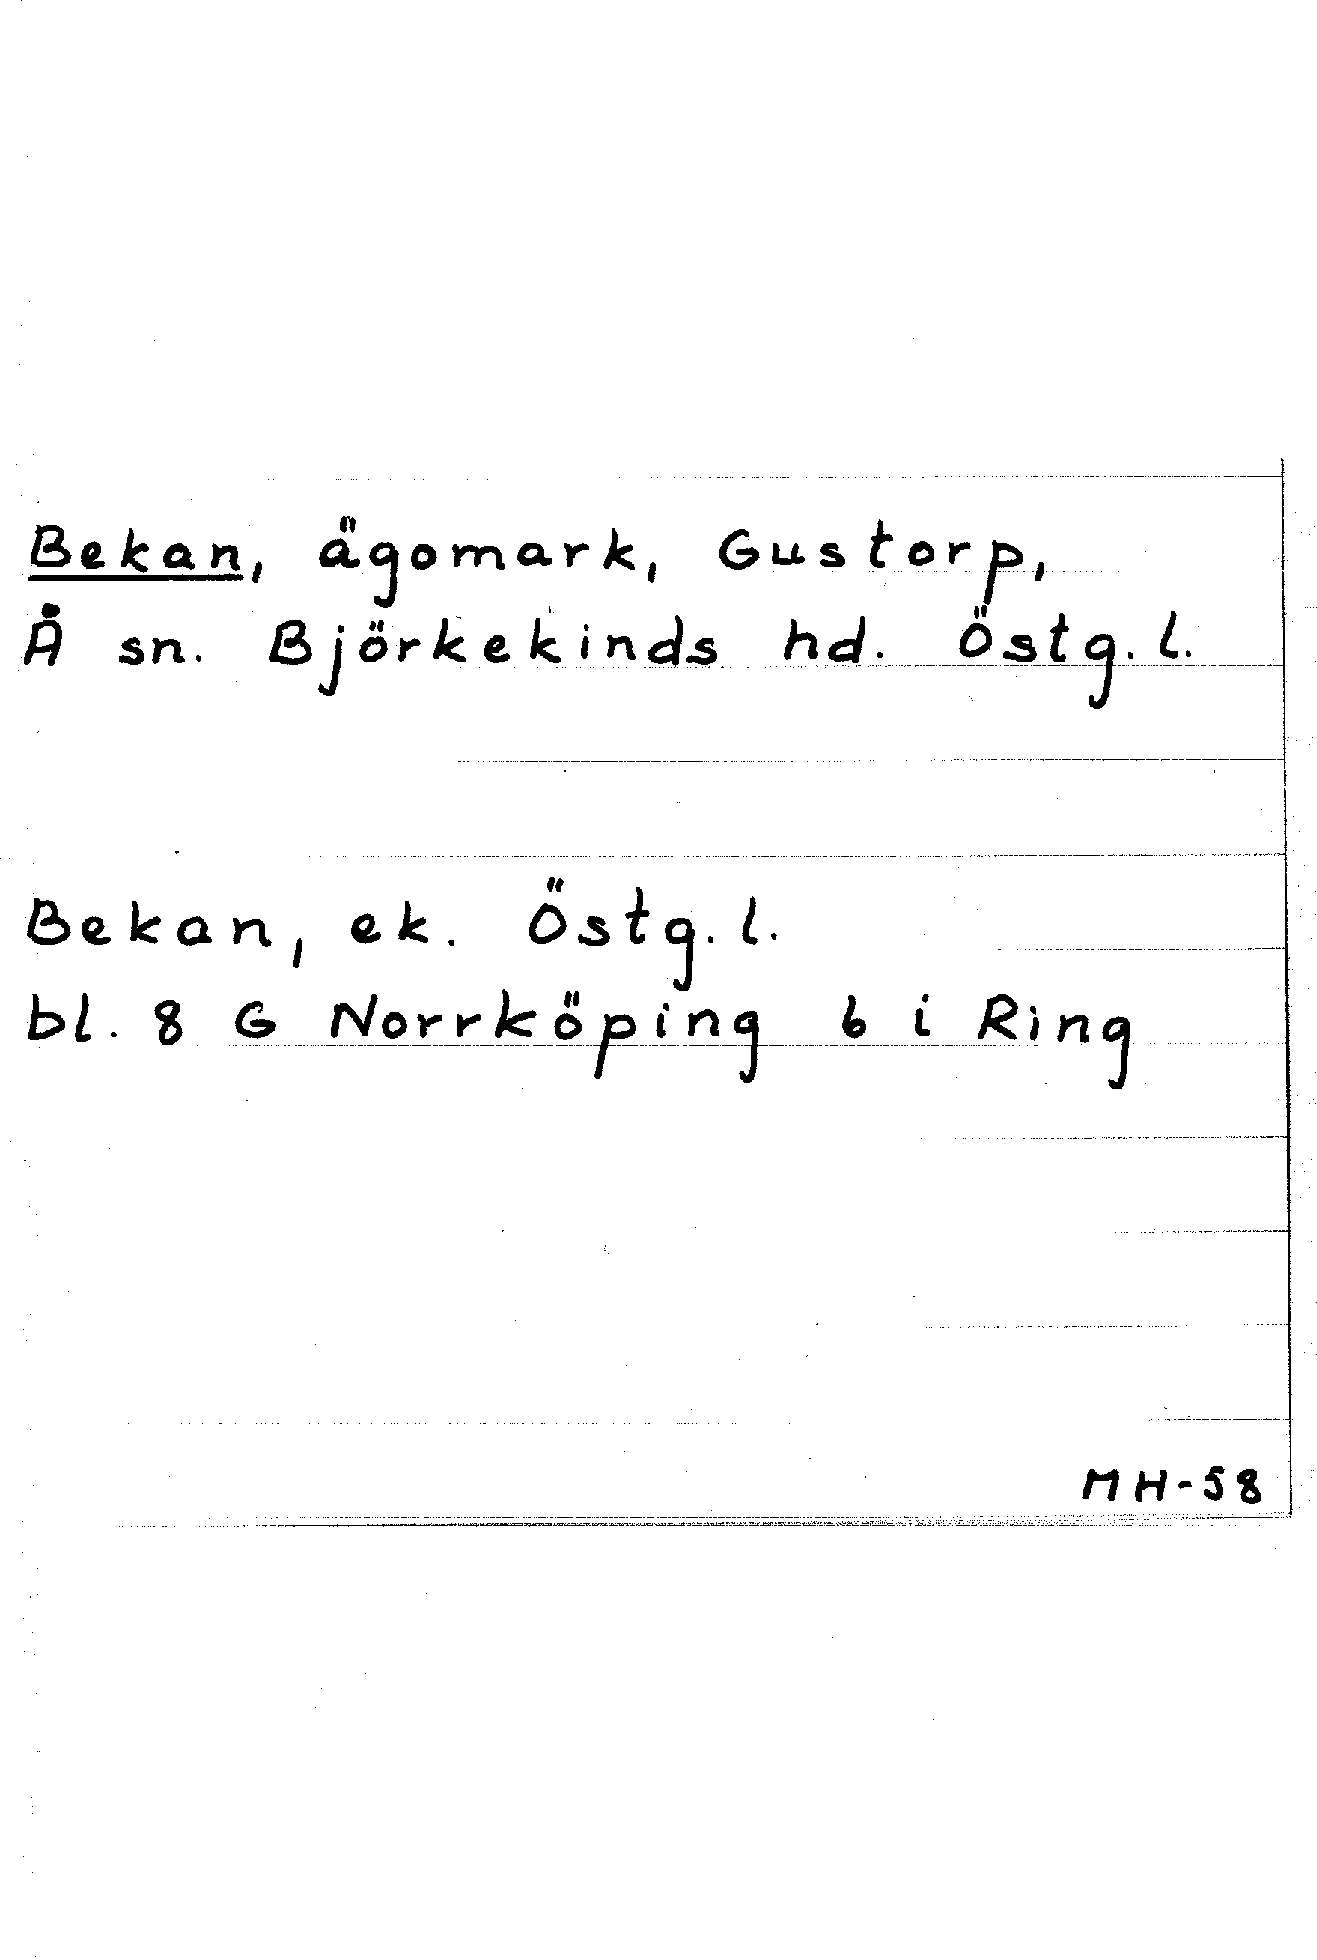 Bekan, ägomark, Gustorp,
Å sn. Björkekinds hd. Östg. l.
Bekan, ek. Östg. l.
bl. 8 G Norrköping 6 i Ring
MH-58